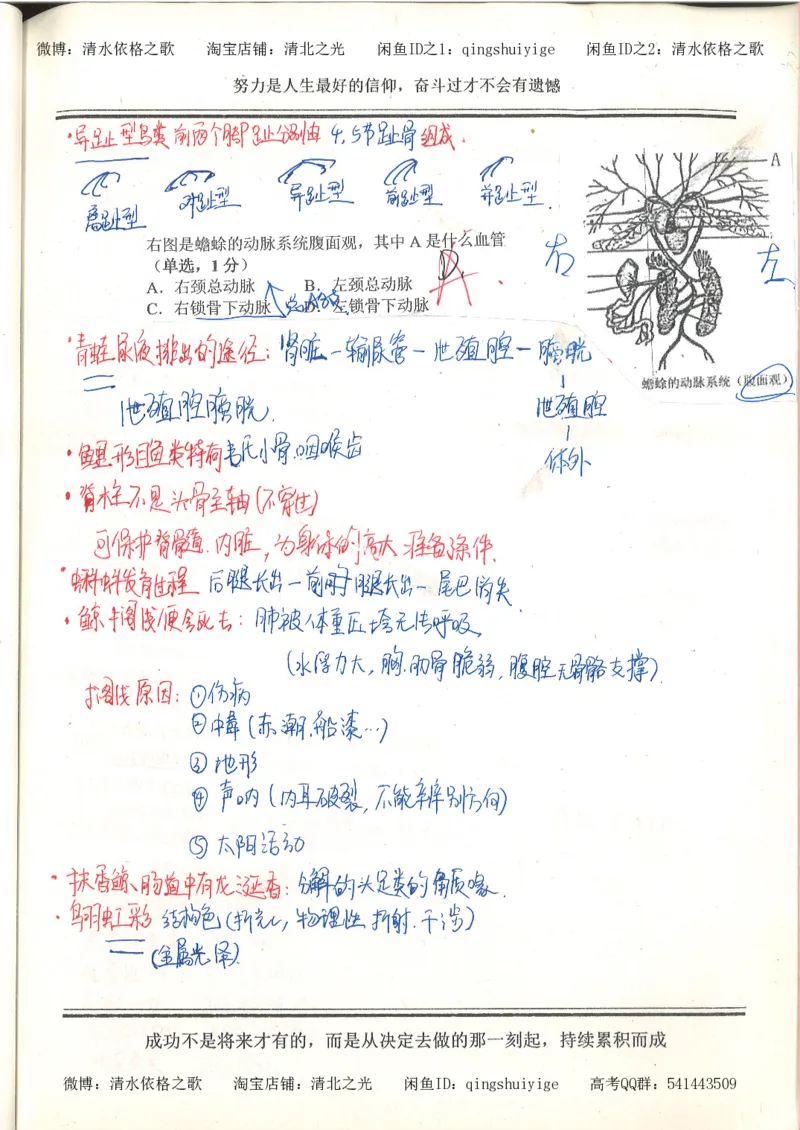 微博：清水依格之歌 淘宝店铺：清北之光 闲鱼ID之1：qingshuiyige 闲鱼ID之2：清水依格之歌
努力是人生最好的信仰，奋斗过才不会有遗憾
·异趾型鸟类前两个脚趾分别由 4,5节趾骨组成.
离趾型 对趾型 异趾型 前趾型 并趾型.
A
右图是蟾蜍的动脉系统腹面观，其中 A 是什么血管
（单选，1 分） D
A
右 左
A．右颈总动脉 B．左颈总动脉
C．右锁骨下动脉 左锁骨下动脉
蟾蜍的动脉系统（腹面观）
·青蛙尿液排出的途径：肾脏—输尿管—泄殖腔—膀胱
泄殖腔膀胱. 泄殖腔
体外
·鲤形目鱼类特有韦氏小骨.咽喉齿
·脊柱不是头骨主轴(不穿过)
可保护脊髓.内脏,为身体的高大准备条件.
·蝌蚪发育过程 后腿长出—前腿长出—尾巴消失
·鲸搁浅便会死去：肺被体重压垮无法呼吸
(水浮力大,胸.肋骨脆弱,腹腔无骨骼支撑).
搁浅原因：①伤病
②中毒(赤潮.船漆…)
③地形
④声呐(内耳破裂,不能辨别方向)
⑤太阳活动
·抹香鲸、肠道中有龙涎香：分解的头足类的角质喙.
·鸟羽虹彩 结构色(折光,物理性 折射.干涉)
(金属光泽).
成功不是将来才有的，而是从决定去做的那一刻起，持续累积而成
微博：清水依格之歌 淘宝店铺：清北之光 闲鱼ID：qingshuiyige 高考QQ群：541443509